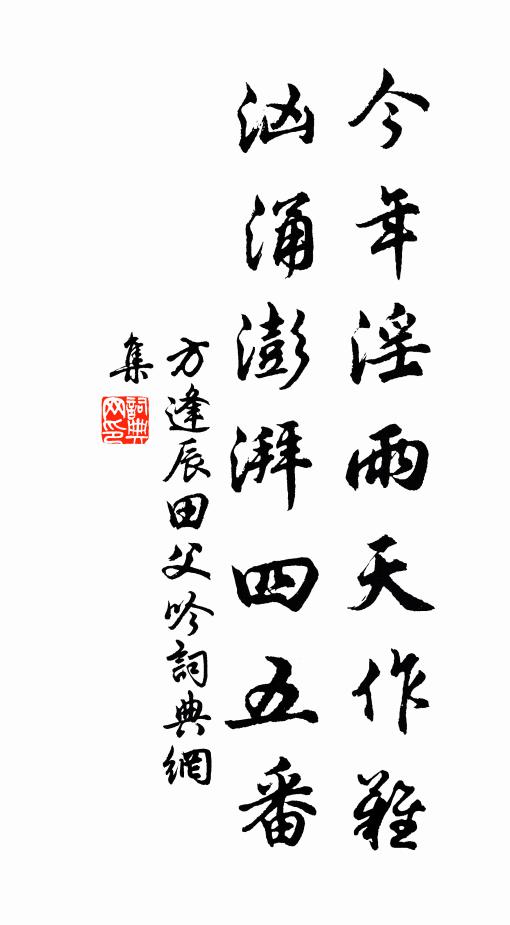 今年淫雨天作難
洶涌澎湃四五番
方逢辰田父吟詞典網
集
詞典網印